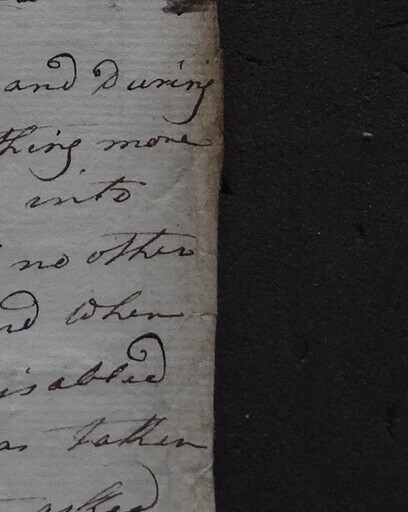 and During
thing more
into
no other
nd when
isabled
as taken
asked